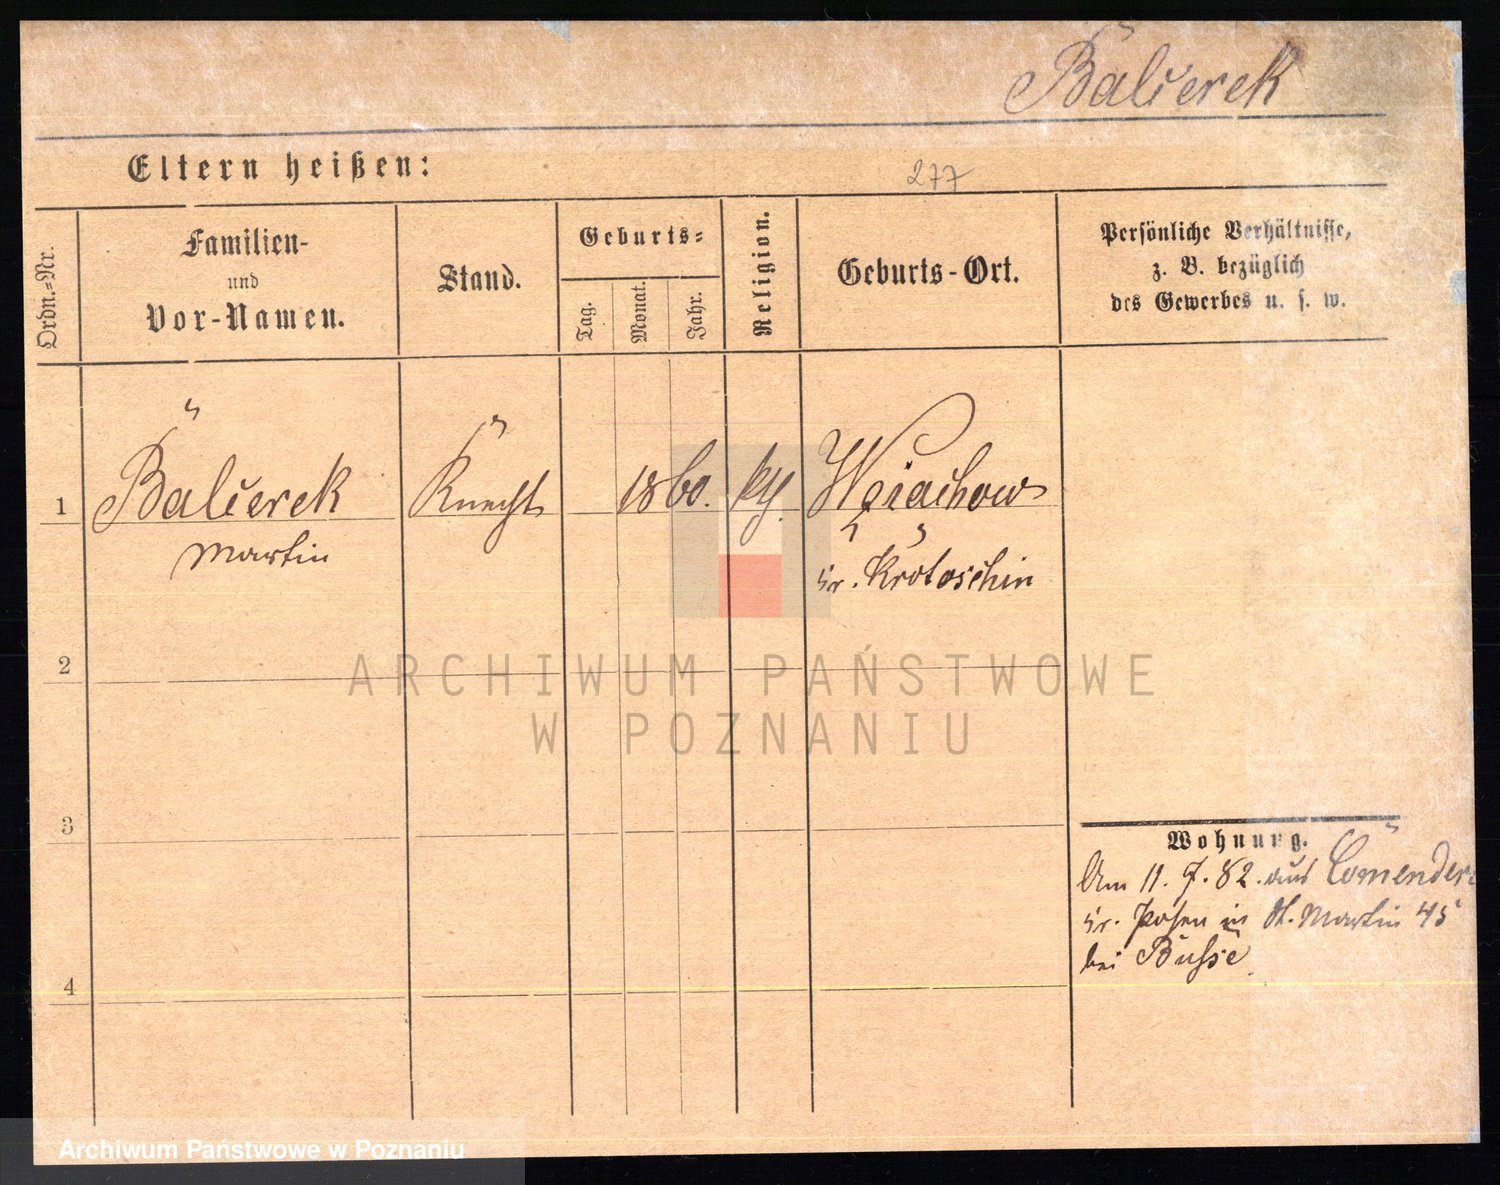 Balcerek
Eltern heißen:
277
Ordn.-Nr.
Familien-
und
Vor-Namen.
Stand.
Geburts-
Tag.
Monat.
Jahr.
Religion.
Geburts-Ort.
Persönliche Verhältnisse,
z. B. bezüglich
des Gewerbes u. s. w.
1
Balcerek
Martin
Knecht
1860.
Kr. Krotoschin
2
3
4
Wohnung.
Am 11. 7. 82. aus
Kr. Posen in St. Martin 45
bei Busse
ARCHIWUM PAŃSTWOWE
W POZNANIU
Archiwum Państwowe w Poznaniu